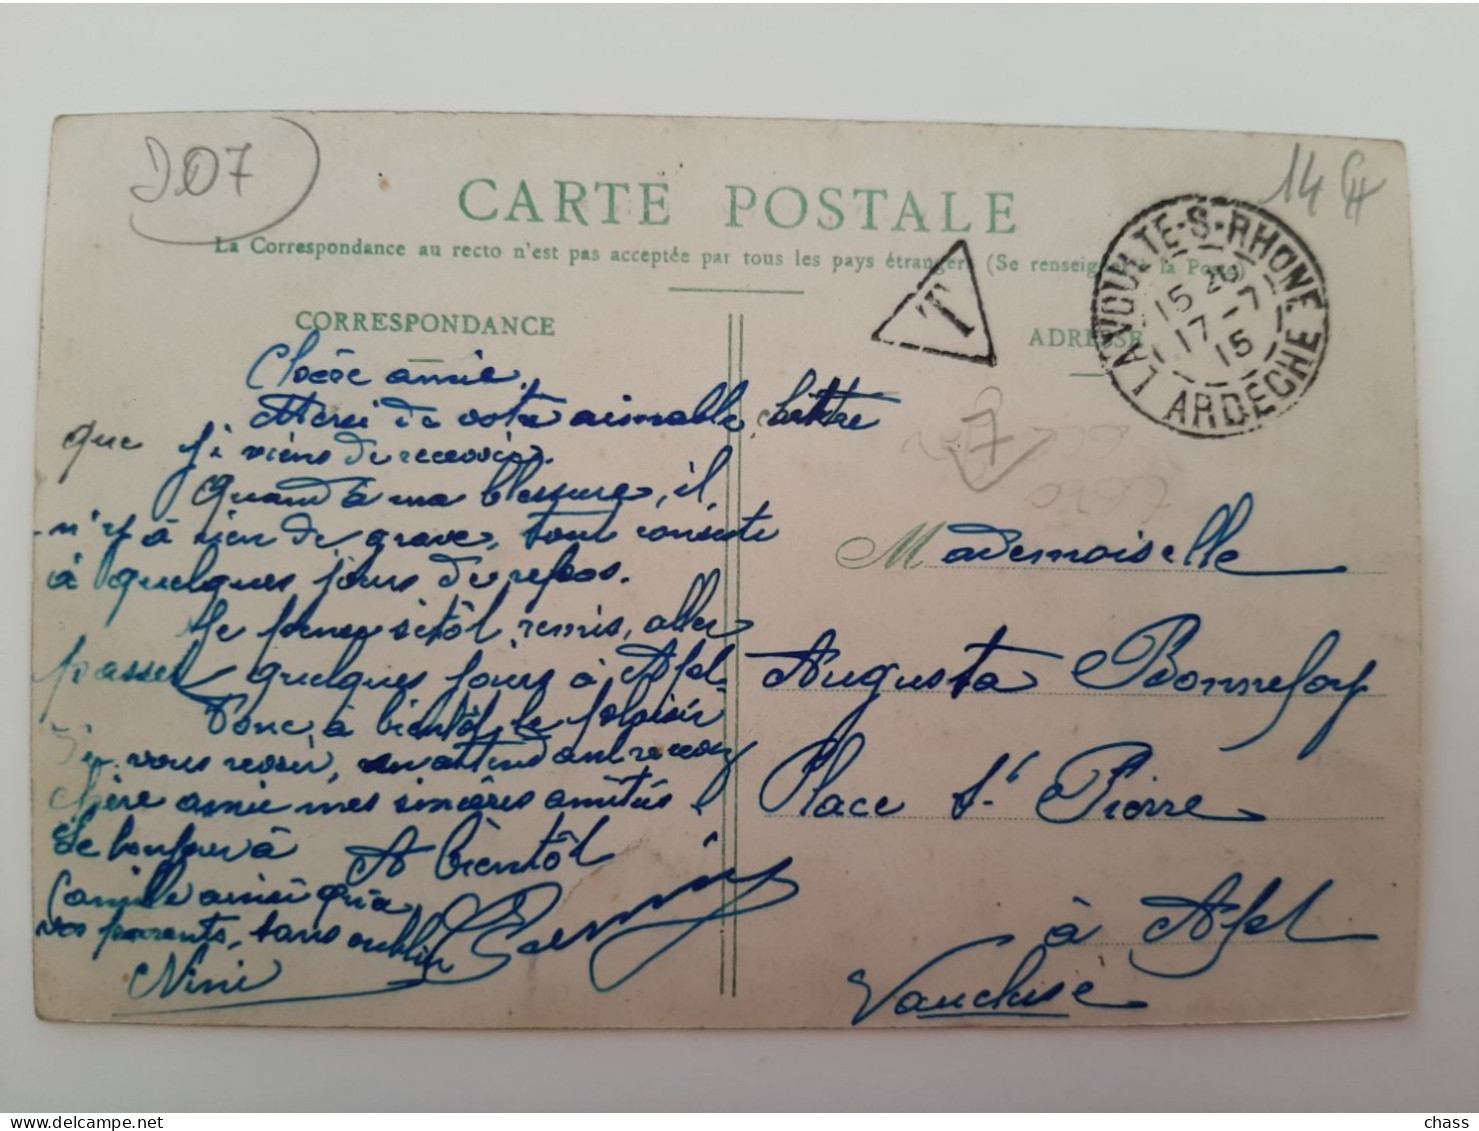 D.07
14 CH
CARTE POSTALE
La Correspondance au recto n'est pas acceptée par tous les pays étrangers (Se renseigner à la Poste)
T
LAVOULTE-S-RHONE
15 20
17 -7
15
ARDECHE
CORRESPONDANCE
Chère amie.
Merci de votre aimable lettre
que j'i viens de recevoir.
Quand à ma blessure, il
n'y à rien de grave, tout consiste
à quelques jours de repos.
Je pense sitôt remis, aller
passer quelques jours à Apt.
Donc à bientôt, le plaisir
vous revoir, en attendant recevez
chère amie mes sincères amitiés
Le bonjour à
A bientôt
Camille ainsi qu'a
vos parents, sans oublier
Nini
ADRESSE
7
Mademoiselle
Augusta Bonnefoy
Place St Pierre
à Apt
Vaucluse
chass